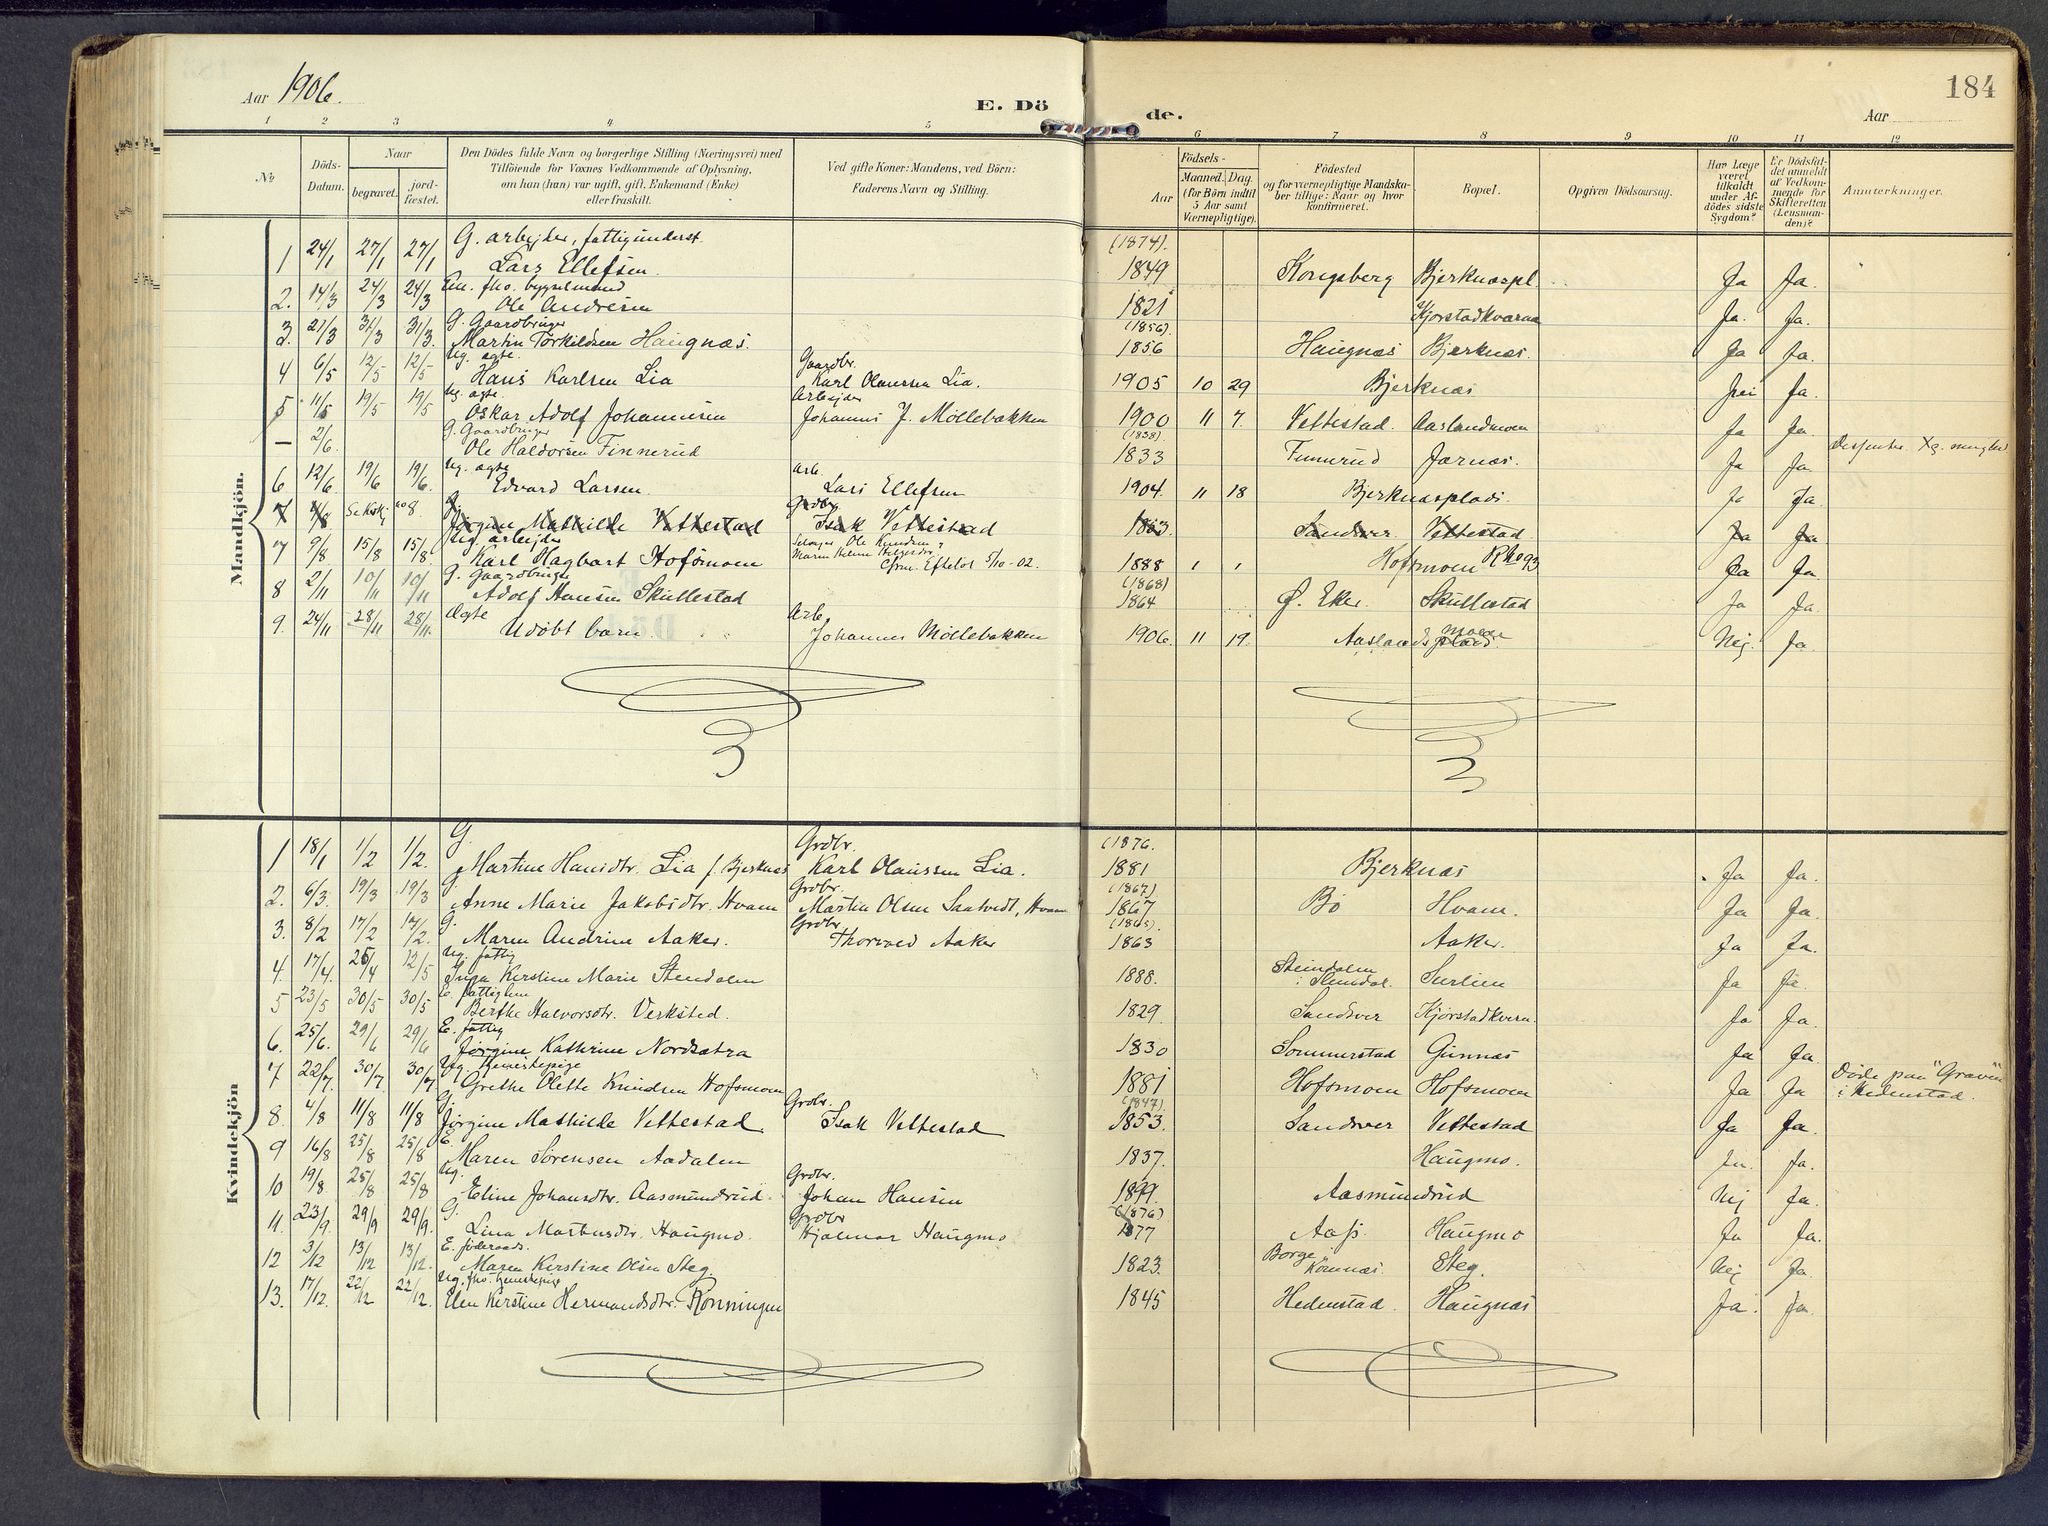 Aar 1906.
E. Dö
de.
184
Aar
1 2 3 4 5 6 7 8 9 10 11 12
No
Döds-Datum.
Naar
begravet.
jord-fæstet.
Den Dödes fulde Navn og borgerlige Stilling (Næringsvei) med
Tilföiende for Voxnes Vedkommende af Oplysning,
om han (hun) var ugift, gift, Enkemand (Enke)
eller fraskilt.
Ved gifte Koner: Mandens, ved Börn:
Faderens Navn og Stilling.
Födsels-
Aar
Maaned. Dag.
(for Börn indtil
5 Aar samt
Værnepligtige).
Födested
og for værnepligtige Mandska-
ber tillige: Naar og hvor
konfirmeret.
Bopæl.
Opgiven Dödsaarsag.
Har Læge
været
tilkaldt
under Af-
dödes sidste
Sygdom?
Er Dödsfal-
det anmeldt
af Vedkom-
mende for
Skifteretten
(Lensman-
den)?
Anmærkninger.
Mandkjön.
1 24/1 27/1 27/1 G. arbejder, fattigunderst. Lars Ellefsen. (1874). 1849 Kongsberg Bjerknæspl. Ja Ja.
2. 14/3 24/3 24/3 Em. fho. bygselmand Ole Andresen 1821 Kjorstadkværna Ja. Ja.
3. 21/3 31/3 31/3. G. Gaardbruger Martin Torkildsen Haugnæs. (1856) 1856 Haugnæs Bjerknæs. Ja Ja.
4 6/5 12/5 12/5 Ug. ægte. Hans Karlsen Lia Gaardbr. Karl Olaussen Lia. 1905 10 29 Bjerknæs Nei Ja.
5 11/5 19/5 19/5 Ug. ægte. Oskar Adolf Johannesen Arbejder Johannes J. Möllebakken 1900 11 7. Vettestad. Aaslandmoen Ja Ja.
– 2/6. G. Gaardbruger Ole Haldorsen Finnerud (1838) 1833 Finnerud Jærnæs. Ja Ja.
6 12/6. 19/6 19/6. Ug. ægte Edvard Larsen. Arb. Lars Ellefsen 1904. 11 18 Bjerknæsplads. Ja Ja.
7 4/8 Se Kvkj. no 8. G. Jørgine Mathilde Vettestad Grdbr. Isak Vettestad 1853. Sandsver Vettestad. Ja Ja
7 9/8 15/8 15/8. Ug. arbejder Karl Hagbart Hofsmoen Ole Knudsen Cfrm. Efteløt 5/10-02. 1888 1 1 Hofsmoen Ja Ja
8 2/11 10/11 10/11 G. Gaardbruger Adolf Hansen Skullestad (1868) 1864 Ø. Eker. Skullestad Ja Ja.
9. 24/11 28/11 28/11. Ægte Udöbt barn. Arb. Johannes Möllebakken 1906. 11 19. Aaslands moen Nej. Ja
Kvindekjön
1 18/1 1/2 1/2. G. Martine Hansdtr. Lia f. Bjerknæs Grdbr. Karl Olaussen Lia. (1876. 1881 Bjerknæs Ja Ja.
2. 6/3. 19/3 19/3 G. Anne Marie Jakobsdtr. Hvam Grdbr. Martin Olsen Saatvedt, Hvam (1867) 1867 Bö Hvam. Ja Ja.
3. 8/2 17/2 17/2. G. Maren Andrine Aaker. Grdbr. Thorvald Aaker (1865) 1863 Aaker. Ja Ja.
4. 17/4. 25/4 12/5 Ug. fattig Inga Kirstine Marie Stendalen 1888. Steindalen i Flendal. Surlien Ja Ja.
5 23/5 30/5 30/5 E. fattiglem Berthe Halvorsdtr. Verksted. 1829. Sandsver Kjorstadkvern. Ja Ja.
6. 25/6. 29/6 29/6 E. fattig Jørgine Kathrine Nordsætra 1830 Sommerstad Gunnæs Ja Ja.
7 22/7. 30/7 30/7 Ug. tjenestepige Grethe Olette Knudsen Hofsmoen 1881 Hofsmoen Hofsmoen Ja Ja Døde paa "Graven" i Hedenstad.
8. 4/8 11/8 11/8 G. Jørgine Mathilde Vettestad. Grdbr. Isak Vettestad (1847). 1853. Sandsver Vettestad Ja Ja.
9 16/8 25/8 25/8 E. Maren Sørensen Aadalen 1837. Haugmo. Ja. Ja.
10 19/8 25/8 25/8 Ug. Eline Johansdtr. Aasmundrud. Grdbr. Johan Hansen 1899. Aasmundrud Nej Ja.
11 23/9. 29/9 29/9. G. Lina Mathisdtr. Haugmo. Grdbr Hjalmar Haugmo (1876) 1877 Aas. Haugmo Ja Ja.
12 3/12 13/12 13/12. E. föderaads. Maren Kirstine Olsen Steg. 1823. Borge Komnæs. Steg. Nej Ja.
13. 17/12. 22/12 22/12. Ug. fho. tjenstepige Elen Kirstine Hermandsdtr. Rönningen 1845 Hedenstad. Haugnæs Ja. Ja.